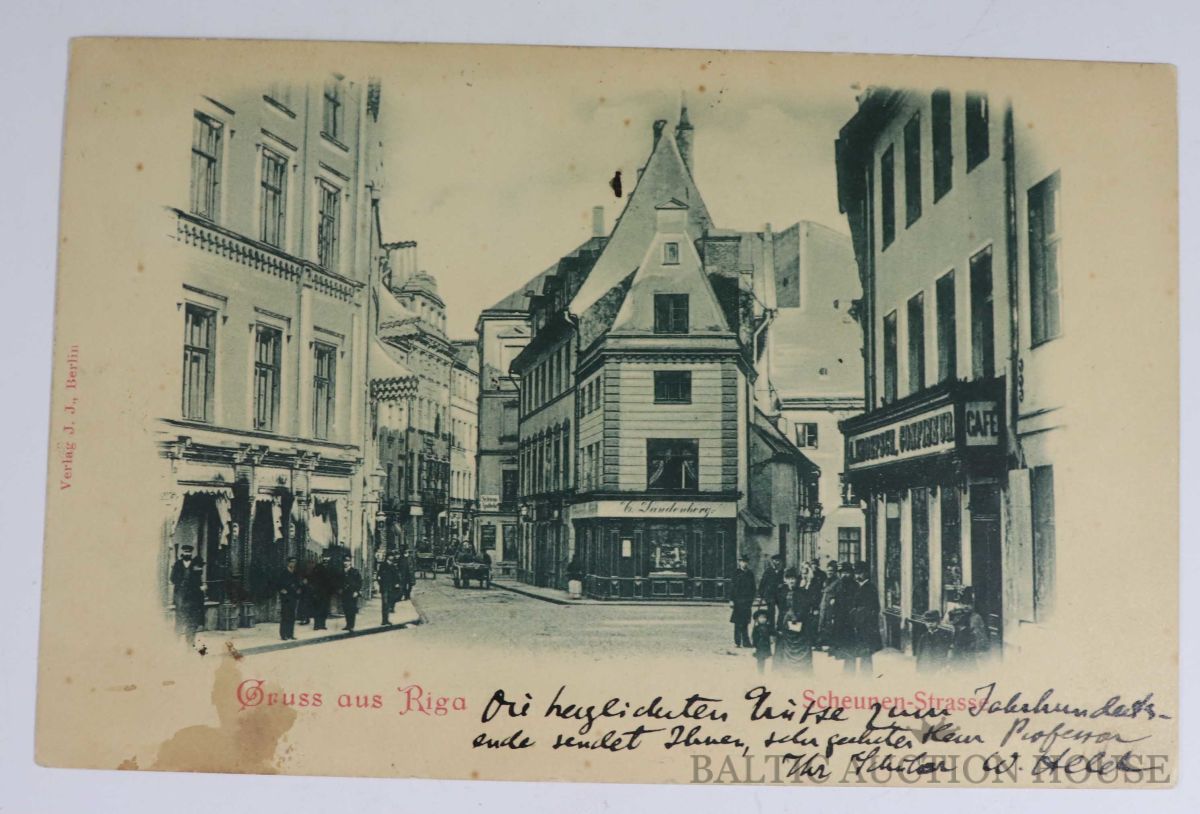 Verlag J. J., Berlin
CAFÉ
C. Landenberg.
Gruss aus Riga
Scheunen-Strasse
Die herzlichsten Grüsse zum Jahrhunderts-
ende sendet Ihnen, sehr geehrter Herr Professor
Ihr Schüler W.
BALTIC AUCTION HOUSE